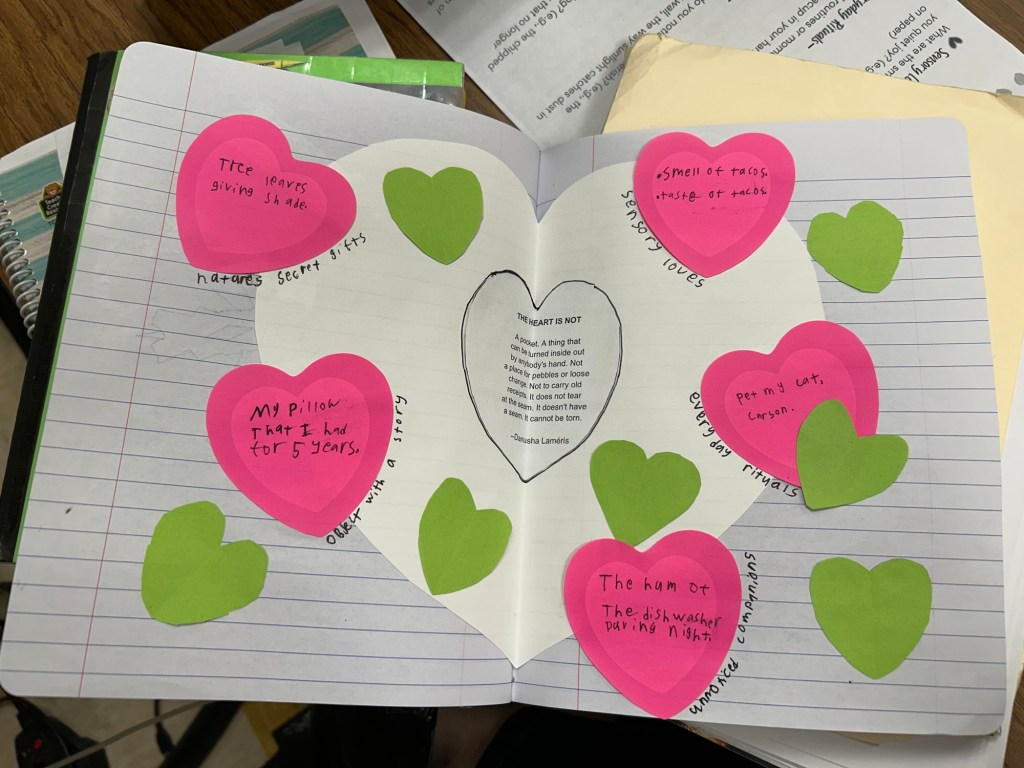 Tree leaves
giving shade.
natares secret gifts
.smell of tacos.
.taste of tacos.
sensory loves
THE HEART IS NOT
A pocket. A thing that
can be turned inside out
by anybody's hand. Not
a place for pebbles or loose
change. Not to carry old
receipts. It does not tear
at the seam. It doesn't have
a seam. It cannot be torn.
~Danusha Laméris
My pillow
That I had
for 5 years.
object with a story
Pet my cat,
Carson.
everyday rituals
The hum of
The dishwasher
During night.
unnoticed companions
What are the
you quiet joy? (e.g.,
on paper)
routines or mom
do you
wall, the
way sunlight catches dust in
(e.g., the chipped
that no longer